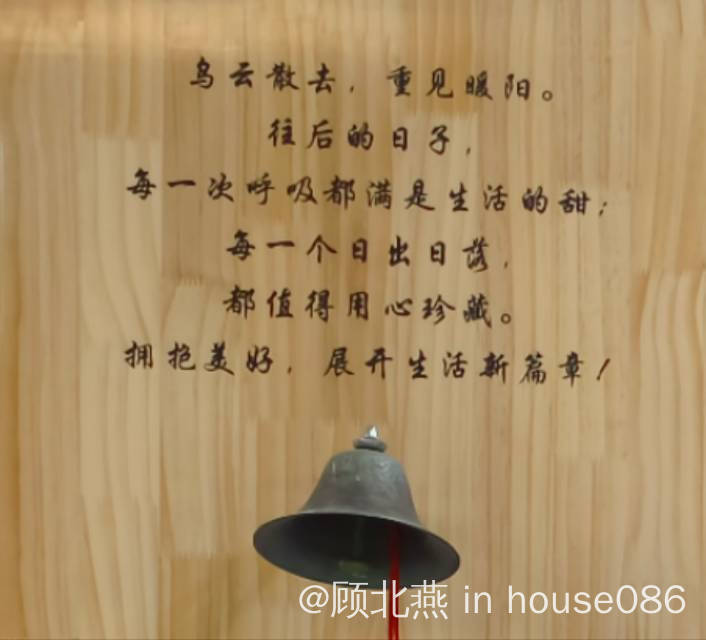 乌云散去，重见暖阳。
往后的日子，
每一次呼吸都满是生活的甜；
每一个日出日落，
都值得用心珍藏。
拥抱美好，展开生活新篇章！
@顾北燕 in house086